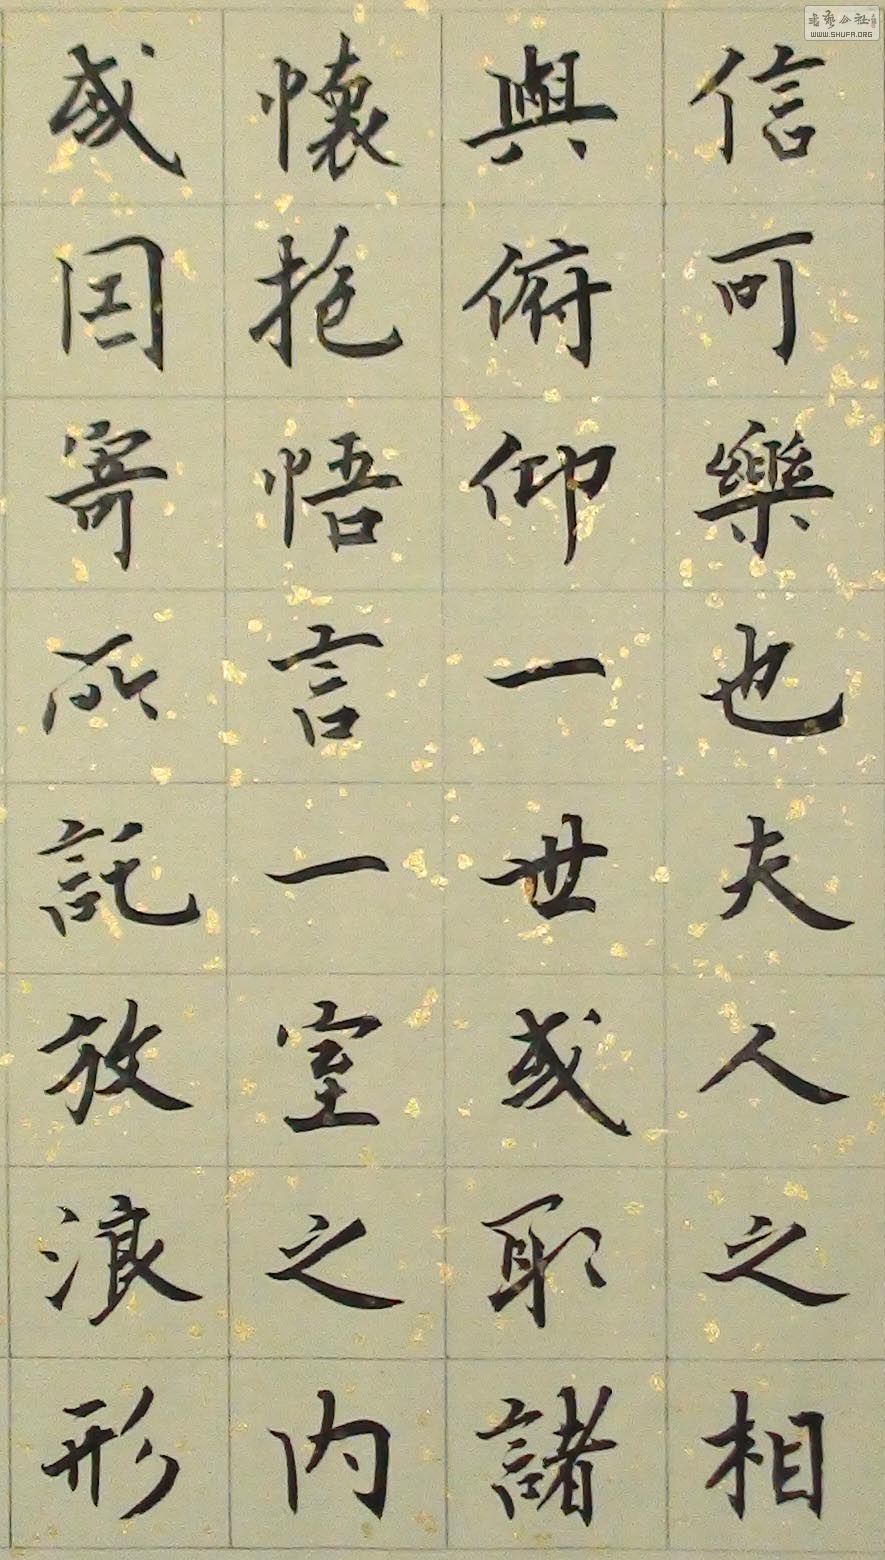 信可樂也夫人之相
與俯仰一世或取諸
懷抱悟言一室之內
或因寄所託放浪形
书艺公社
WWW.SHUFA.ORG